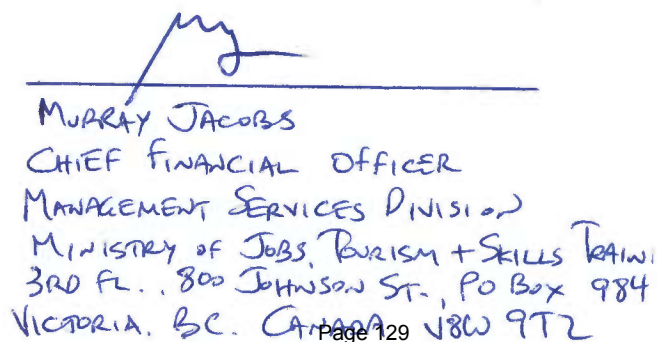 MURRAY JACOBS
CHIEF FINANCIAL OFFICER
MANAGEMENT SERVICES DIVISION
MINISTRY OF JOBS, TOURISM + SKILLS TRAINI
3RD FL., 800 JOHNSON ST., PO BOX 984
VICTORIA. BC. CANADA V8W 9T2
Page 129